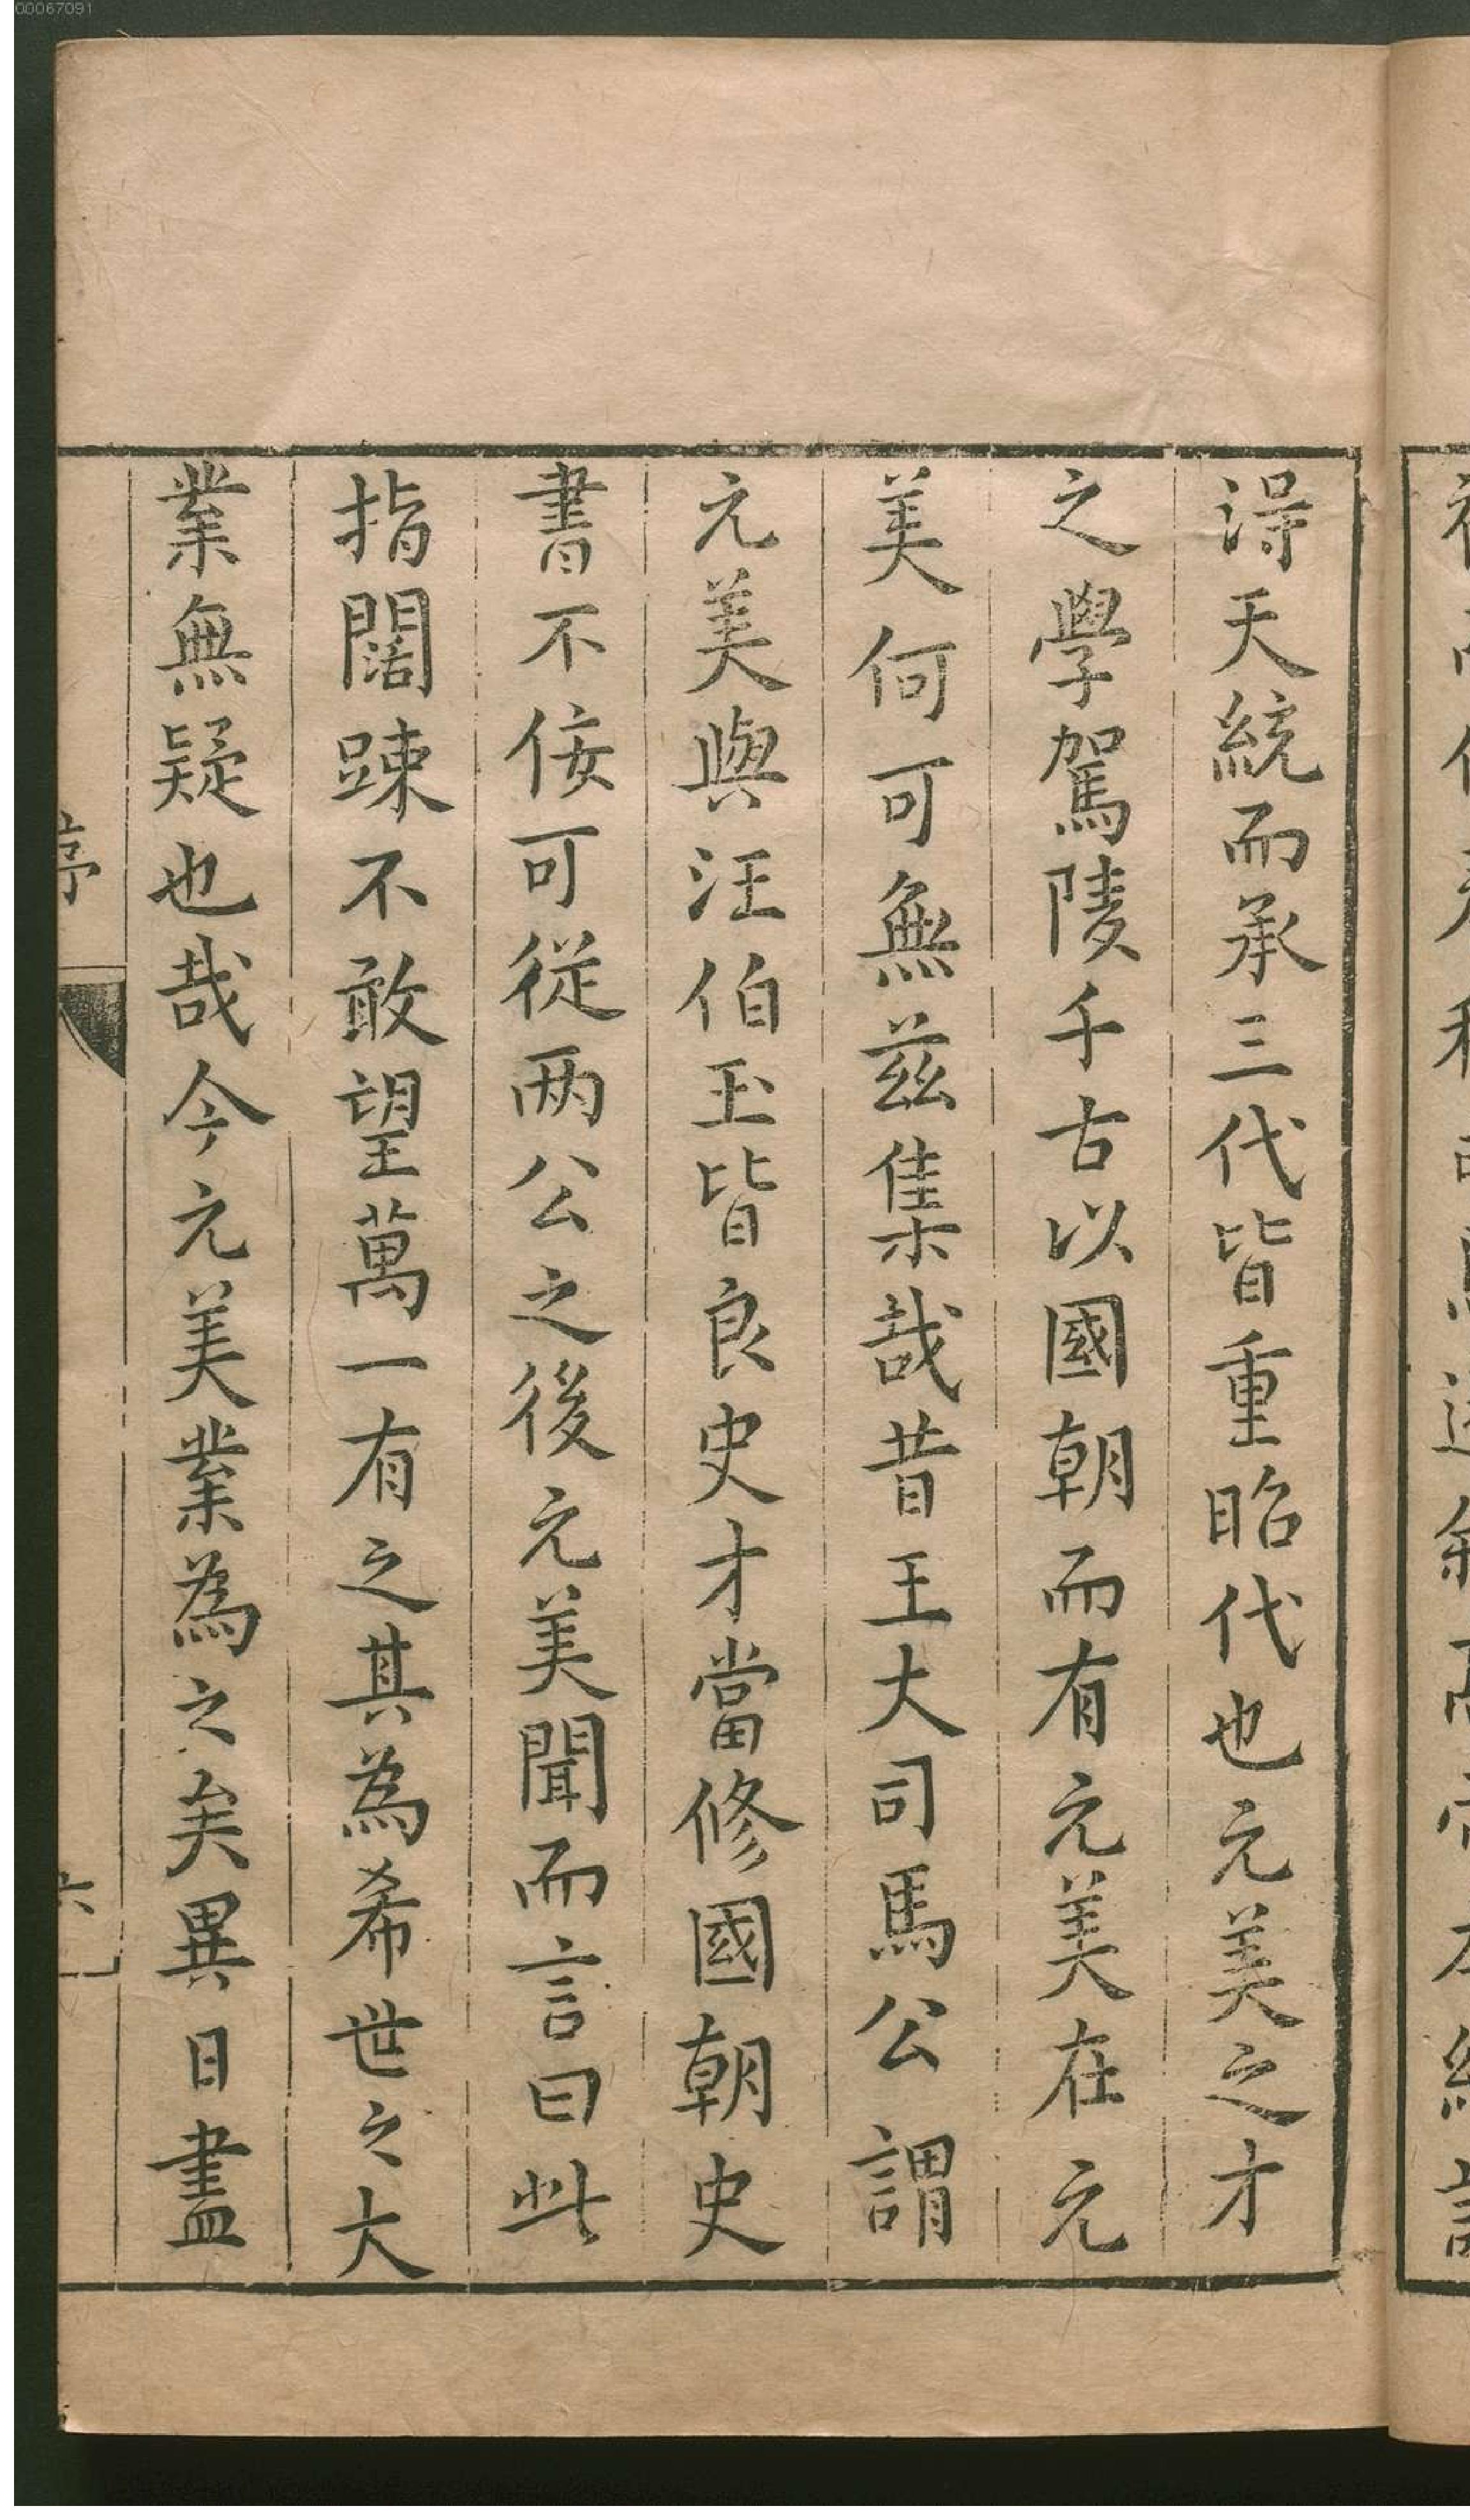 00067091
淂天統而承三代皆重昭代也元美之才
之學駕陵千古以國朝而有元美在元
美何可無兹集哉昔王大司馬公謂
元美與汪伯玉皆良史才當修國朝史
書不佞可從两公之後元美聞而言曰此
指闊踈不敢望萬一有之其為希世之大
業無疑也哉今元美業為之矣異日盡
序
六